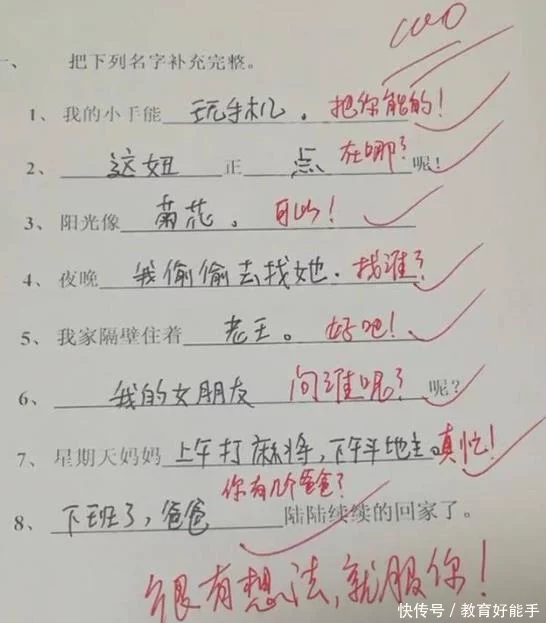 100
一、 把下列名字补充完整。
1、我的小手能 玩手机。 把你能的！
2、 这妞 正 点 在哪？ 呢！
3、阳光像 菊花。 可以！
4、夜晚 我偷偷去找她. 找谁？
5、我家隔壁住着 老王。 好吧！
6、 我的女朋友 问谁呢？ 呢？
7、星期天妈妈 上午打麻将，下午斗地主。真忙！
你有几个爸爸？
8、 下班了，爸爸 陆陆续续的回家了。
很有想法，就服你！
快传号 / 教育好能手